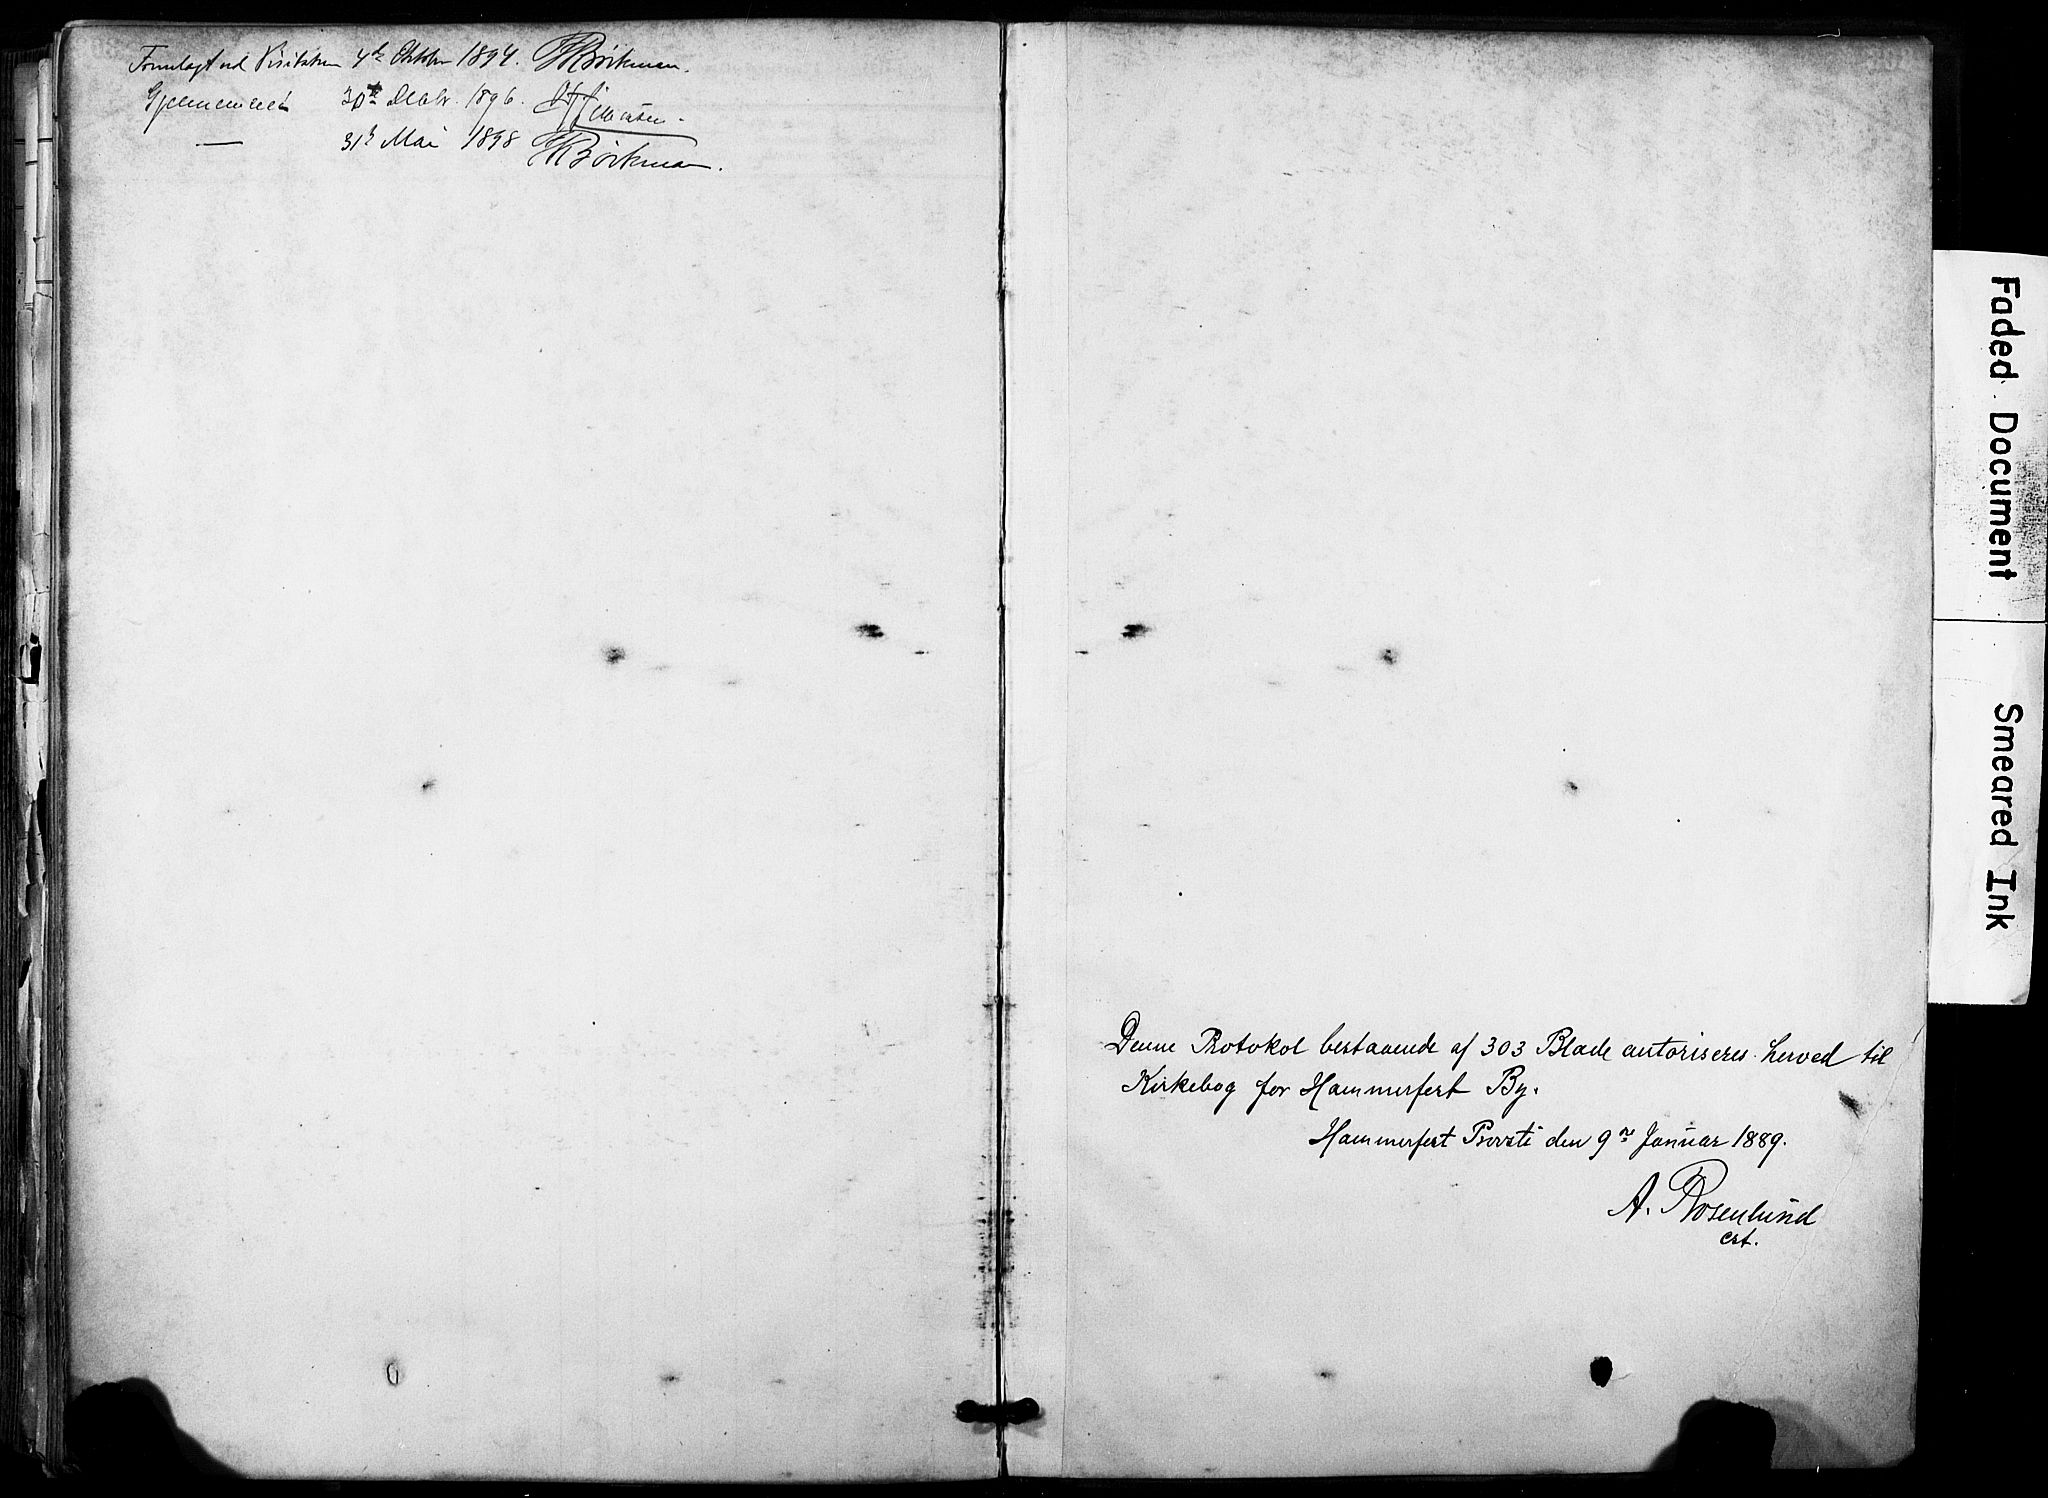 Fremlagt ved Visitatsen 4de Oktober 1894. Bøckman.
Gjennemseet 30te Decbr. 1896.
— 31te Mai 1898 Bøckman.
Denne Protokol bestaaende af 303 Blade autoriseres herved til
Kirkebog for Hammerfest By.
Hammerfest Provsti den 9de Januar 1889.
A. Rosenlund
cst.
Faded Document
Smeared Ink